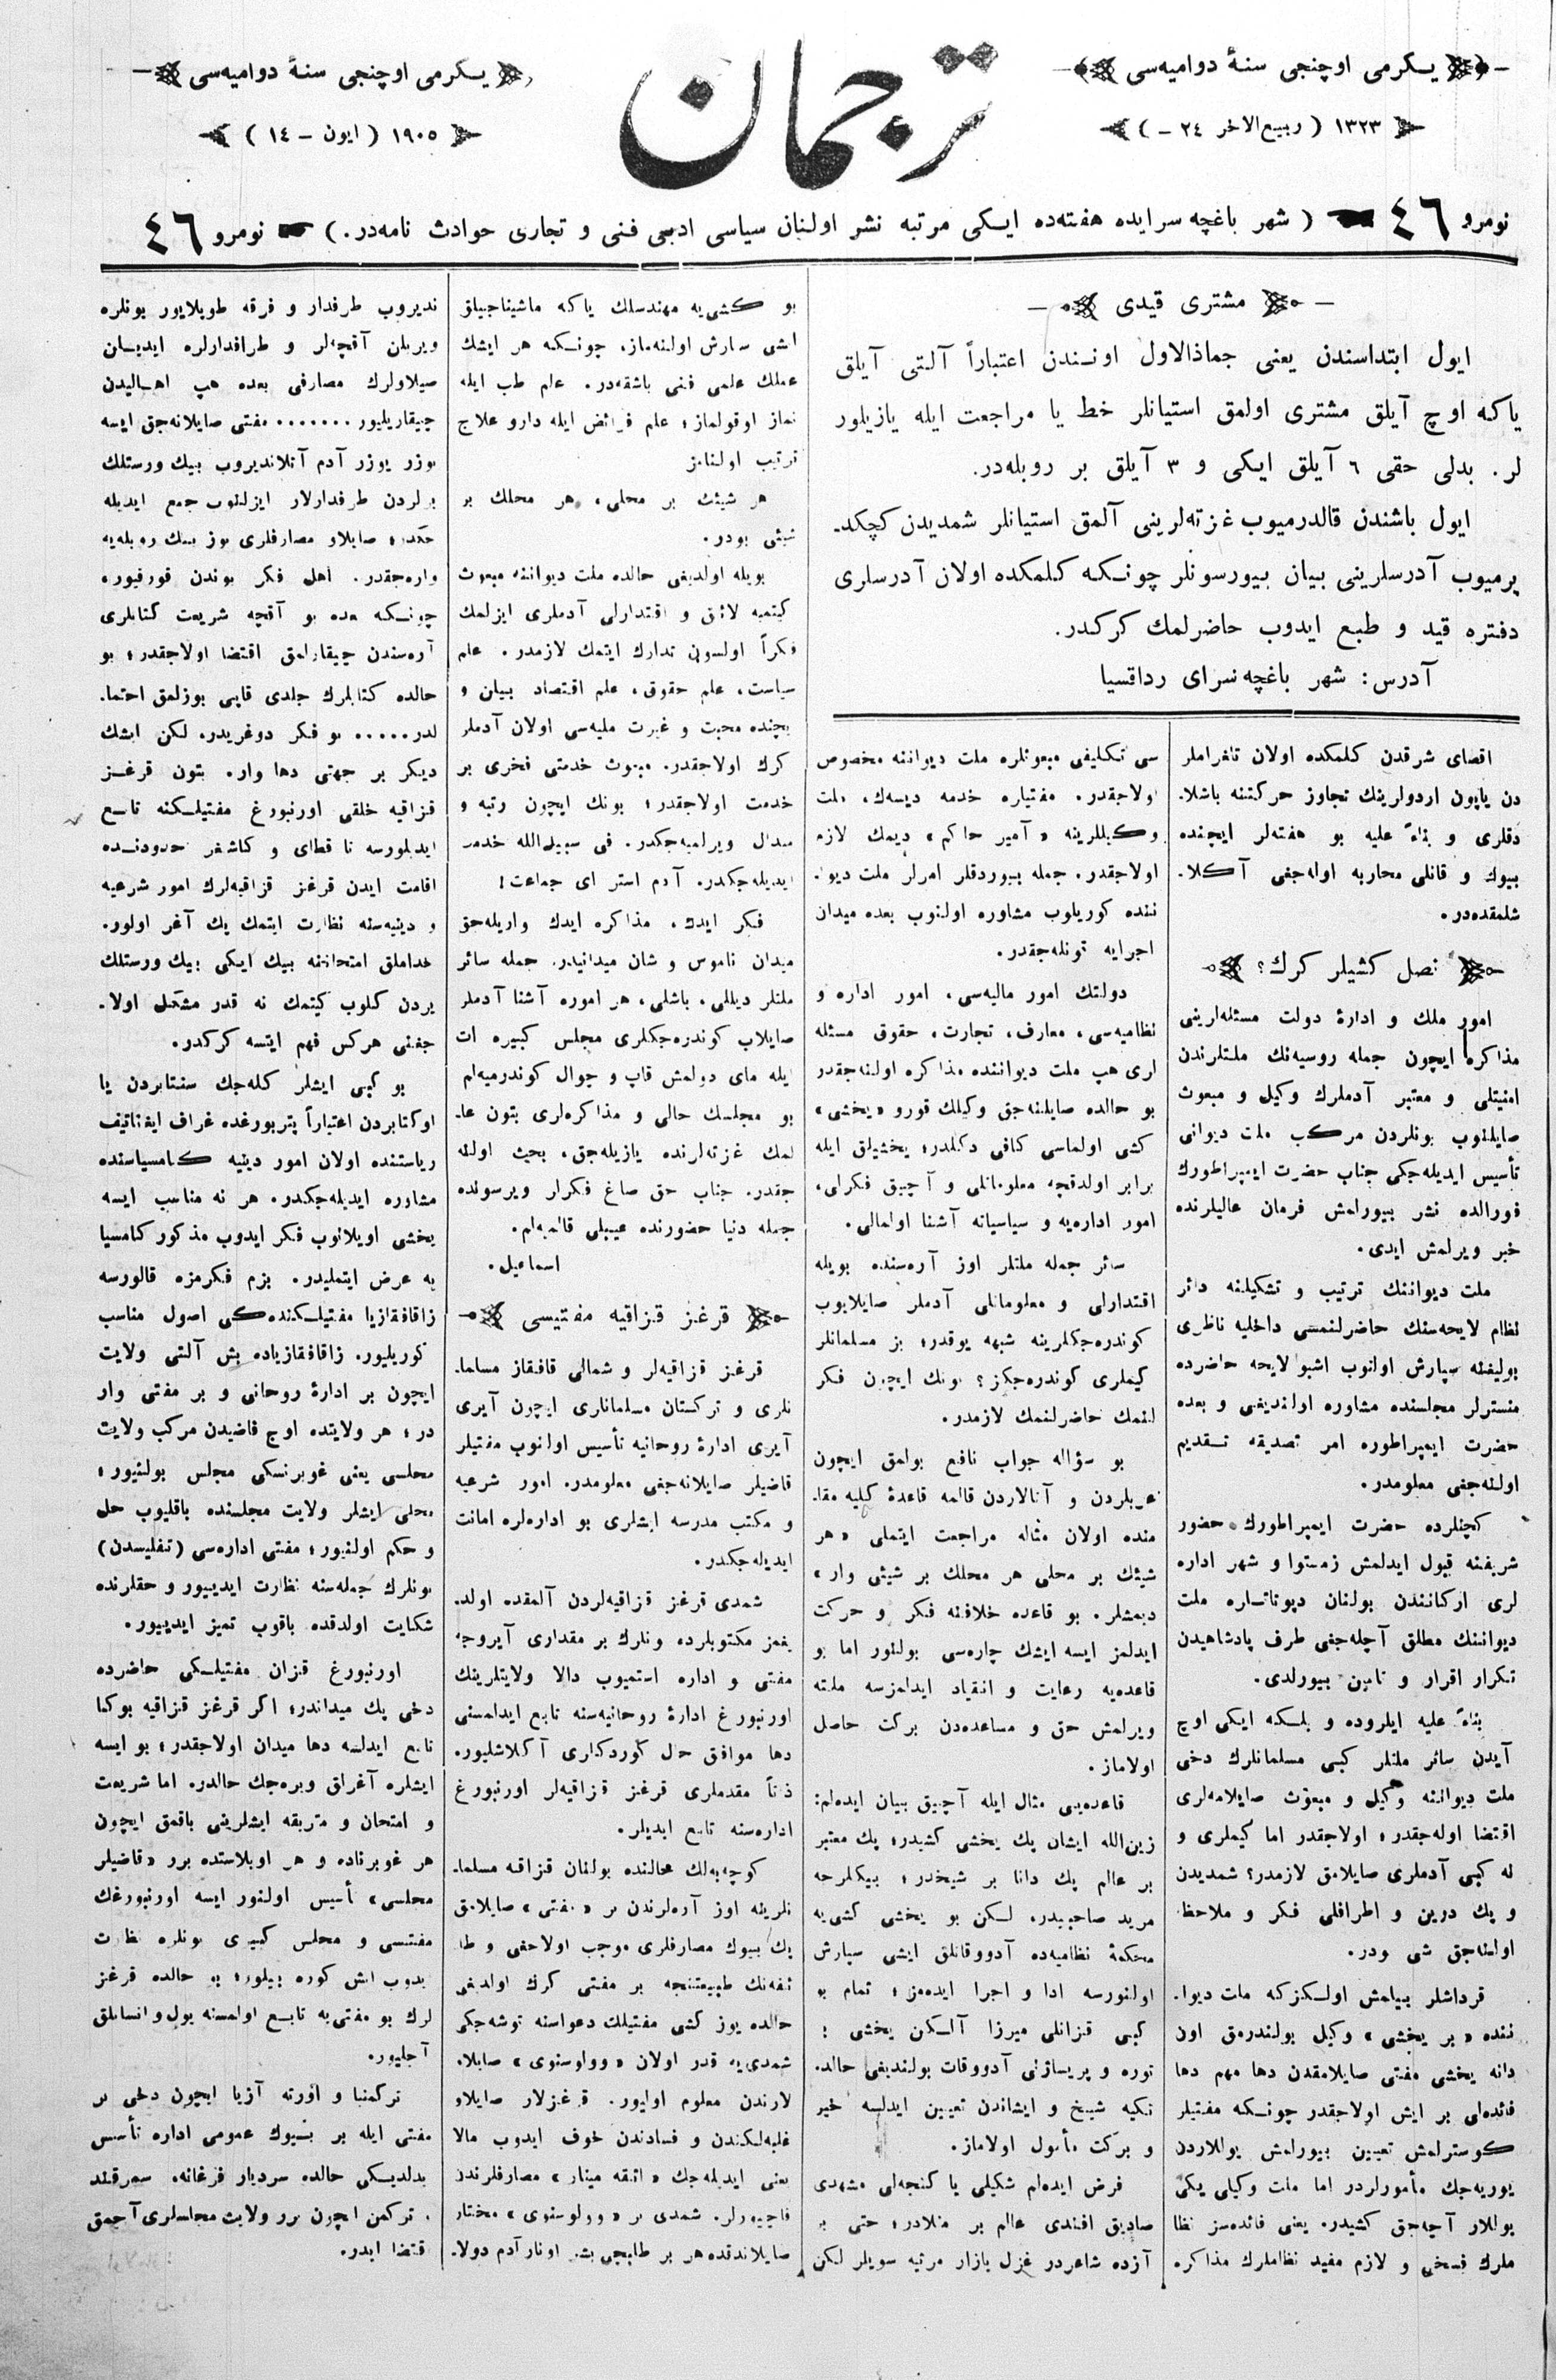 یکرمی اوچنجی سنهٔ دوامیه‌سی
١٣٢٣ ( ربیع‌الاخر ٢٤ – )
ترجمان
یکرمی اوچنجی سنهٔ دوامیه‌سی
١٩٠٥ ( ایون – ١٤ )
نومرو ٤٦ ( شهر باغچه سرایده هفته‌ده ایکی مرتبه نشر اولنان سیاسی ادبی فنی و تجاری حوادث نامه‌در. ) نومرو ٤٦
– مشتری قیدی –
ایول ابتداسندن یعنی جماذالاول اونندن اعتباراً آلتی آیلق
یاکه اوچ آیلق مشتری اولمق استیانلر خط یا مراجعت ایله یازیلور
لر. بدلی حقی ٦ آیلق ایکی و ٣ آیلق بر روبله‌در.
ایول باشندن قالدرمیوب غزته‌لرینی آلمق استیانلر شمدیدن کچکد‌ـ
یرمیوب آدرسلرینی بیان بیورسونلر چونکه کلمکده اولان آدرسلری
دفتره قید و طبع ایدوب حاضرلمك کرکدر.
آدرس: شهر باغچه‌سرای رداقسیا
اقصای شرقدن کلمکده اولان تلغراملر
دن یاپون اردولرینك تجاوز حرکتنه باشلا‌ـ
دقلری و بناءً علیه بو هفته‌لر ایچنده
بیوك و قانلی محاربه اوله‌جغی آکلا‌ـ
شلمقده‌در.
نصل کشیلر کرك؟
امور ملك و ادارهٔ دولت مسئله‌لرینی
مذاکره ایچون جمله روسیه‌نك ملتلرندن
امنیتلی و معتبر آدملرك وکیل و مبعوث
صایلنوب بونلردن مرکب ملت دیوانی
تأسیس ایدیله‌جکی جناب حضرت ایمپراطورك
فورالده نشر بیورلمش فرمان عالیلرنده
خبر ویرلمش ایدی.
ملت دیواننك ترتیب و تشکیلنه دائر
نظام لایحه‌سنك حاضرلنمسی داخلیه ناظری
بولیغنه سپارش اولنوب اشبو لایحه حاضرده
منسترلر مجلسنده مشاوره اولندیغی و بعده
حضرت ایمپراطوره امر تصدیقه تقدیم
اولنه‌جغی معلومدر.
کچنلرده حضرت ایمپراطورك حضور
شریفنه قبول ایدلمش زمستوا و شهر اداره
لری ارکانندن بولنان دپوتاتلره ملت
دیواننك مطلق آچله‌جغی طرف پادشاهیدن
تکرار اقرار و تامین بیورلدی.
بناءً علیه ایلروده و بلکه ایکی اوچ
آیدن سائر ملتلر کبی مسلمانلرك دخی
ملت دیواننه وکیل و مبعوث صایلامه‌لری
اقتضا اوله‌جقدر؛ اولاجقدر اما کیملری و
نه کبی آدملری صایلامق لازمدر؟ شمدیدن
و پك درین و اطرافلی فکر و ملاحظه
اولنه‌جق شی بودر.
قرداشلر بیلمش اولکزکه ملت دیوا‌ـ
ننده «بر یخشی» وکیل بولندرمق اون
دانه یخشی مفتی صایلامقدن دها مهم دها
فائده‌لی بر ایش اولاجقدر چونکه مفتیلر
کوسترلمش تعیین بیورلمش یوللاردن
یوریه‌جك مأمورلردر اما ملت وکیلی یکی
یوللار آچه‌جق کشیدر. یعنی فائده‌سز نظا
ملرك فسخی و لازم مفید نظاملرك مذاکره
سی تکلیفی مبعوثلره ملت دیواننه مخصوص
اولاجقدر. مفتیلره خدمه دیسه‌ك، ملت
وکیللرینه «آمیر حاکم» دیمك لازم
اولاجقدر. جمله بیوردقلر امرلر ملت دیوا‌ـ
ننده کوریلوب مشاوره اولنوب بعده میدان
اجرایه قونله‌جقدر.
دولتك امور مالیه‌سی، امور اداره و
نظامیه‌سی، معارف، تجارت، حقوق مسئله
لری هپ ملت دیواننده مذاکره اولنه‌جقدر
بو حالده صایلنه‌جق وکیلك قورو «یخشی»
کشی اولماسی کافی دکلدر؛ یخشیلق ایله
برابر اولدقچه معلوماتلی و آچیق فکرلی،
امور اداره‌یه و سیاسیاته آشنا اولمالی.
سائر جمله ملتلر اوز آره‌سنده بویله
اقتدارلی و معلوماتلی آدملر صایلایوب
کوندره‌جکلرینه شبهه یوقدر؛ بز مسلمانلر
کیملری کوندره‌جکز؟ بونك ایچون فکر
لنمك حاضرلنمك لازمدر.
بو سؤاله جواب نافع بولمق ایچون
عربلردن و آتالاردن قالمه قاعدهٔ کلیه مقا‌ـ
منده اولان مثاله مراجعت ایتملی «هر
شیئك بر محلی هر محلك بر شیئی وار»
دیمشلر. بو قاعده خلافنه فکر و حرکت
ایدلمز ایسه ایشك چاره‌سی بولنور اما بو
قاعده‌یه رعایت و انقیاد ایدلمزسه ملته
ویرلمش حق و مساعده‌دن برکت حاصل
اولاماز.
قاعده‌یی مثال ایله آچیق بیان ایده‌لم:
زین‌الله ایشان پك یخشی کشیدر؛ پك معتبر
بر عالم پك دانا بر شیخدر؛ بیکلرجه
مرید صاحبیدر. لکن بو یخشی کشی‌یه
محکمهٔ نظامیه‌ده آدووقاتلق ایشی سپارش
اولنورسه ادا و اجرا ایده‌مز؛ تمام بو
کبی قزانلی میرزا آلکن یخشی
توره و پریساژنی آدووقات بولندیغی حالد‌ـ
تکیه شیخ و ایشاندن تعیین ایدلسه خیر
و برکت مأمول اولاماز.
فرض ایده‌لم شکیلی یا کنجه‌لی مشهدی
صادیق افندی عالم بر منلادر؛ حتی
آزده شاعردر غزل بازار مرثیه سویلر لکن
بو کشی‌یه مهندسلك یاکه ماشیناجیلق
ایشی سپارش اولنه‌ماز، چونکه هر ایشك
عملك علمی فنی باشقه‌در. علم طب ایله
نماز اوقولماز؛ علم فرائض ایله دارو علاج
ترتیب اولنماز
هر شیئك بر محلی، هر محلك بر
شیئی بودر.
بویله اولدیغی حالده ملت دیواننه مبعوث
کیتمیه لائق و اقتدارلی آدملری ایزلمك
فکراً اولسون تدارك ایتمك لازمدر. علم
سیاست، علم حقوق، علم اقتصاد بیلن و
ایچنده محبت و غیرت ملیه‌سی اولان آدملر
کرك اولاجقدر. مبعوث خدمتی فخری بر
خدمت اولاجقدر؛ بونك ایچون رتبه و
میدال ویرلمیه‌جکدر. فی سبیل‌الله خدمت
ایدیله‌جکدر. آدم استر ای جماعت!
فکر ایدك، مذاکره ایدك واریله‌جق
میدان ناموس و شان میدانیدر. جمله سائر
ملتلر دیللی، باشلی، هر اموره آشنا آدملر
صایلاب کوندره‌جکلری مجلس کبیره ات
ایله مای دولمش قاپ و جوال کوندرمیه‌لم
بو مجلسك حالی و مذاکره‌لری بتون عا‌ـ
لمك غزته‌لرنده یازیله‌جق، بحث اولنه
جقدر. جناب حق صاغ فکرلر ویرسونده
جمله دنیا حضورنده عیبلی قالمیه‌لم.
اسماعیل.
قرغز قزاقیه مفتیسی
قرغز قزاقیه‌لر و شمالی قافقاز مسلما‌ـ
نلری و ترکستان مسلمانلری ایچون آیری
آیری ادارهٔ روحانیه تأسیس اولنوب مفتیلر
قاضیلر صایلانه‌جغی معلومدر. امور شرعیه
و مکتب مدرسه ایشلری بو اداره‌لره امانت
ایدیله‌جکدر.
شمدی قرغز قزاقیه‌لردن آلمقده اولد‌ـ
یغمز مکتوبلرده ونلرك بر مقداری آیروجه
مفتی و اداره استمیوب دالا ولایتلرینك
اورنبورغ ادارهٔ روحانیه‌سنه تابع ایدلمسنی
دها موافق حال کوردکلری آکلاشلیور.
ذاتاً مقدملری قرغز قزاقیه‌لر اورنبورغ
اداره‌سنه تابع ایدیلر.
کوچه‌به‌لك حالنده بولنان قزاقیه مسلما‌ـ
نلرینه اوز آره‌لرندن بر «مفتی» صایلامق
پك بیوك مصارفلری موجب اولاجغی و طا
ئفه‌نك طبیعتنجه بر مفتی کرك اولدیغی
حالده یوز کشی مفتیلك دعواسنه توشه‌جکی
شمدی‌یه قدر اولان «وولوسنوی» صایلا‌ـ
لارندن معلوم اولیور. قرغزلار صایلاو
غلبه‌لکندن و فسادندن خوف ایدوب مالا
یعنی ایدیله‌جك «ائقه مینار» مصارفلرندن
قاچیورلر. شمدی بر «وولوسنوی» مختار
صایلاندقده هر بر طابچی بشر اونار آدم دولا‌ـ
ندیروب طرفدار و فرقه طوپلایور بونلره
ویریلن آقچه‌لر و طرافدارلره ایدیلن
صیلاولرك مصارفی بعده هپ اهالیدن
چیقاریلیور ....... مفتی صایلانه‌جق ایسه
یوزر یوزر آدم آتلاندیروب بیك ورستلك
یرلردن طرفدارلار ایزلنوب جمع ایدیله
جکدر؛ صایلاو مصارفلری یوز بیك روبله‌یه
واره‌جقدر. اهل فکر بوندن قورقیور،
چونکه بعده بو آقچه شریعت کتابلری
آره‌سندن چیقارلمق اقتضا اولاجقدر؛ بو
حالده کتابلرك جلدی قابی بوزلمق احتما‌ـ
لدر..... بو فکر دوغریدر. لکن ایشك
دیکر بر جهتی دها وار. بتون قرغز
قزاقیه خلقی اورنبورغ مفتیلکنه تابع
ایدیلورسه تا قطای و کاشغر حدودنده
اقامت ایدن قرغز قزاقیه‌لرك امور شرعیه
و دینیه‌سنه نظارت ایتمك پك آغر اولور.
خداملق امتحاننه بیك ایکی بیك ورستلك
یردن کلوب کیتمك نه قدر مشکل اولا‌ـ
جغنی هرکس فهم ایتسه کرکدر.
بو کبی ایشلر کله‌جك سنتابردن یا
اوکتابردن اعتباراً پتربورغده غراف ایغناتیف
ریاستنده اولان امور دینیه کامسیاسنده
مشاوره ایدیله‌جکدر. هر نه مناسب ایسه
یخشی اویلانوب فکر ایدوب مذکور کامسیا
یه عرض ایتملیدر. بزم فکرمزه قالورسه
زاقافقازیا مفتیلکنده‌کی اصول مناسب
کوریلیور. زاقافقازیاده بش آلتی ولایت
ایچون بر ادارهٔ روحانی و بر مفتی وار
در؛ هر ولایتده اوچ قاضیدن مرکب ولایت
مجلسی یعنی غوبرنسکی مجلس بولنیور؛
محلی ایشلر ولایت مجلسنده باقلیوب حل
و حکم اولنیور؛ مفتی اداره‌سی (تفلیسدن)
بونلرك جمله‌سنه نظارت ایدییور و حقلرنده
شکایت اولدقده باقوب تمیز ایدییور.
اورنبورغ قزان مفتیلکی حاضرده
دخی پك میداندر؛ اکر قرغز قزاقیه بوکا
تابع ایدلسه دها میدان اولاجقدر؛ بو ایسه
ایشلره آغرلق ویره‌جك حالدر. اما شریعت
و امتحان و متریقه ایشلرینی باقمق ایچون
هر غوبرناده و هر اوبلاستده برر «قاضیلر
مجلسی» تأسیس اولنور ایسه اورنبورغك
مفتیسی و مجلس کبیری بونلره نظارت
ایدوب ایش کوره بیلور؛ بو حالده قرغز
لرك بو مفتی‌یه تابع اولمسنه یول و انساملق
آچلیور.
ترکمنیا و اورته آزیا ایچون دخی بر
مفتی ایله بر بیوك عمومی اداره تأسیس
ایدلدیکی حالده سردیار فرغانه، سمرقند
، ترکمن ایچون برر ولایت مجلسلری آچمق
اقتضا ایدر.